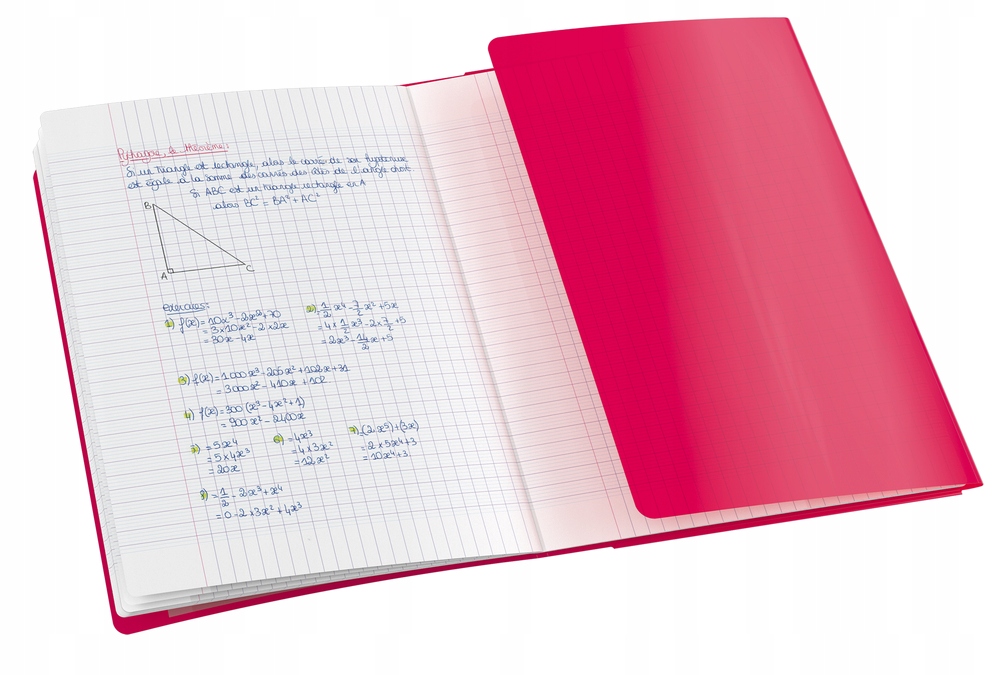 Pythagore, le théorème:
Si un triangle est rectangle, alors le carré de son hypoténuse
est égale à la somme des carrés des côtés de l'angle droit
Si ABC est un triangle rectangle en A
alors BC² = BA² + AC²
B
A
C
exercices:
1) f(x) = 10x³ - 2x² + 70
= 3 × 10x² - 2 × 2x
= 30x - 4x
2) = 1/2 x⁴ - 7/2 x² + 5x
= 4 × 1/2 x³ - 2 × 7/2 + 5
= 2x³ - 14/2 x + 5
3) f(x) = 1000x³ - 205x² + 102x + 31
= 3000x² - 410x + 102
4) f(x) = 300 (x³ - 4x² + 1)
= 900x² - 2400x
5) = 5x⁴
= 5 × 4x³
= 20x
6) = 4x³
= 4 × 3x²
= 12x²
7) (2x⁵) + (3x)
= 2 × 5x⁴ + 3
= 10x⁴ + 3
8) = 1/2 - 2x³ + x⁴
= 0 - 2 × 3x² + 4x³